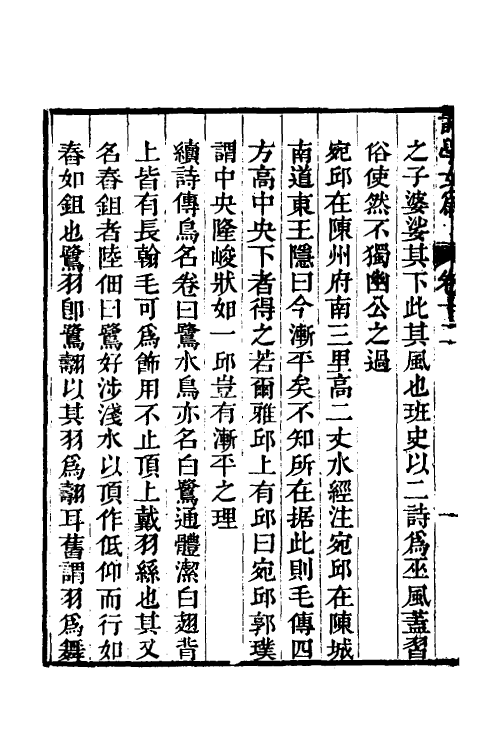 之子婆娑其下此其風也班史以二詩爲巫風蓋習
俗使然不獨幽公之過
宛邱在陳州府南三里高二丈水經注宛邱在陳城
南道東王隱曰今漸平矣不知所在据此則毛傳四
方高中央下者得之若爾雅邱上有邱曰宛邱郭璞
謂中央隆峻狀如一邱豈有漸平之理
續詩傳鳥名卷曰鷺水鳥亦名白鷺通體潔白翅背
上皆有長翰毛可爲飾用不止頂上戴羽絲也其又
名舂鉏者陸佃曰鷺好涉淺水以頂作低仰而行如
舂如鉏也鷺羽卽鷺翿以其羽爲翿耳舊謂羽爲舞